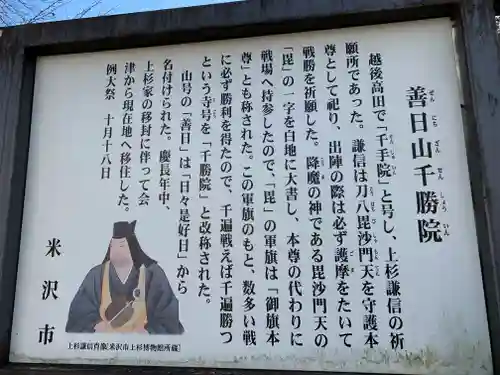 善日山千勝院
ぜんにちざんせんしょういん
越後高田で「千手院」と号し、上杉謙信の祈
願所であった。謙信は刀八毘沙門天を守護本
尊として祀り、出陣の際は必ず護摩をたいて
戦勝を祈願した。降魔の神である毘沙門天の
「毘」の一字を白地に大書し、本尊の代わりに
戦場へ持参したので、「毘」の軍旗は「御旗本
尊」とも称された。この軍旗のもと、数多い戦
に必ず勝利を得たので、千遍戦えば千遍勝つ
という寺号を「千勝院」と改称された。
山号の「善日」は「日々是好日」から
名付けられた。慶長年中、
上杉家の移封に伴って会
津から現在地へ移住した。
例大祭 十月十八日
米沢市
上杉謙信肖像[米沢市上杉博物館所蔵]